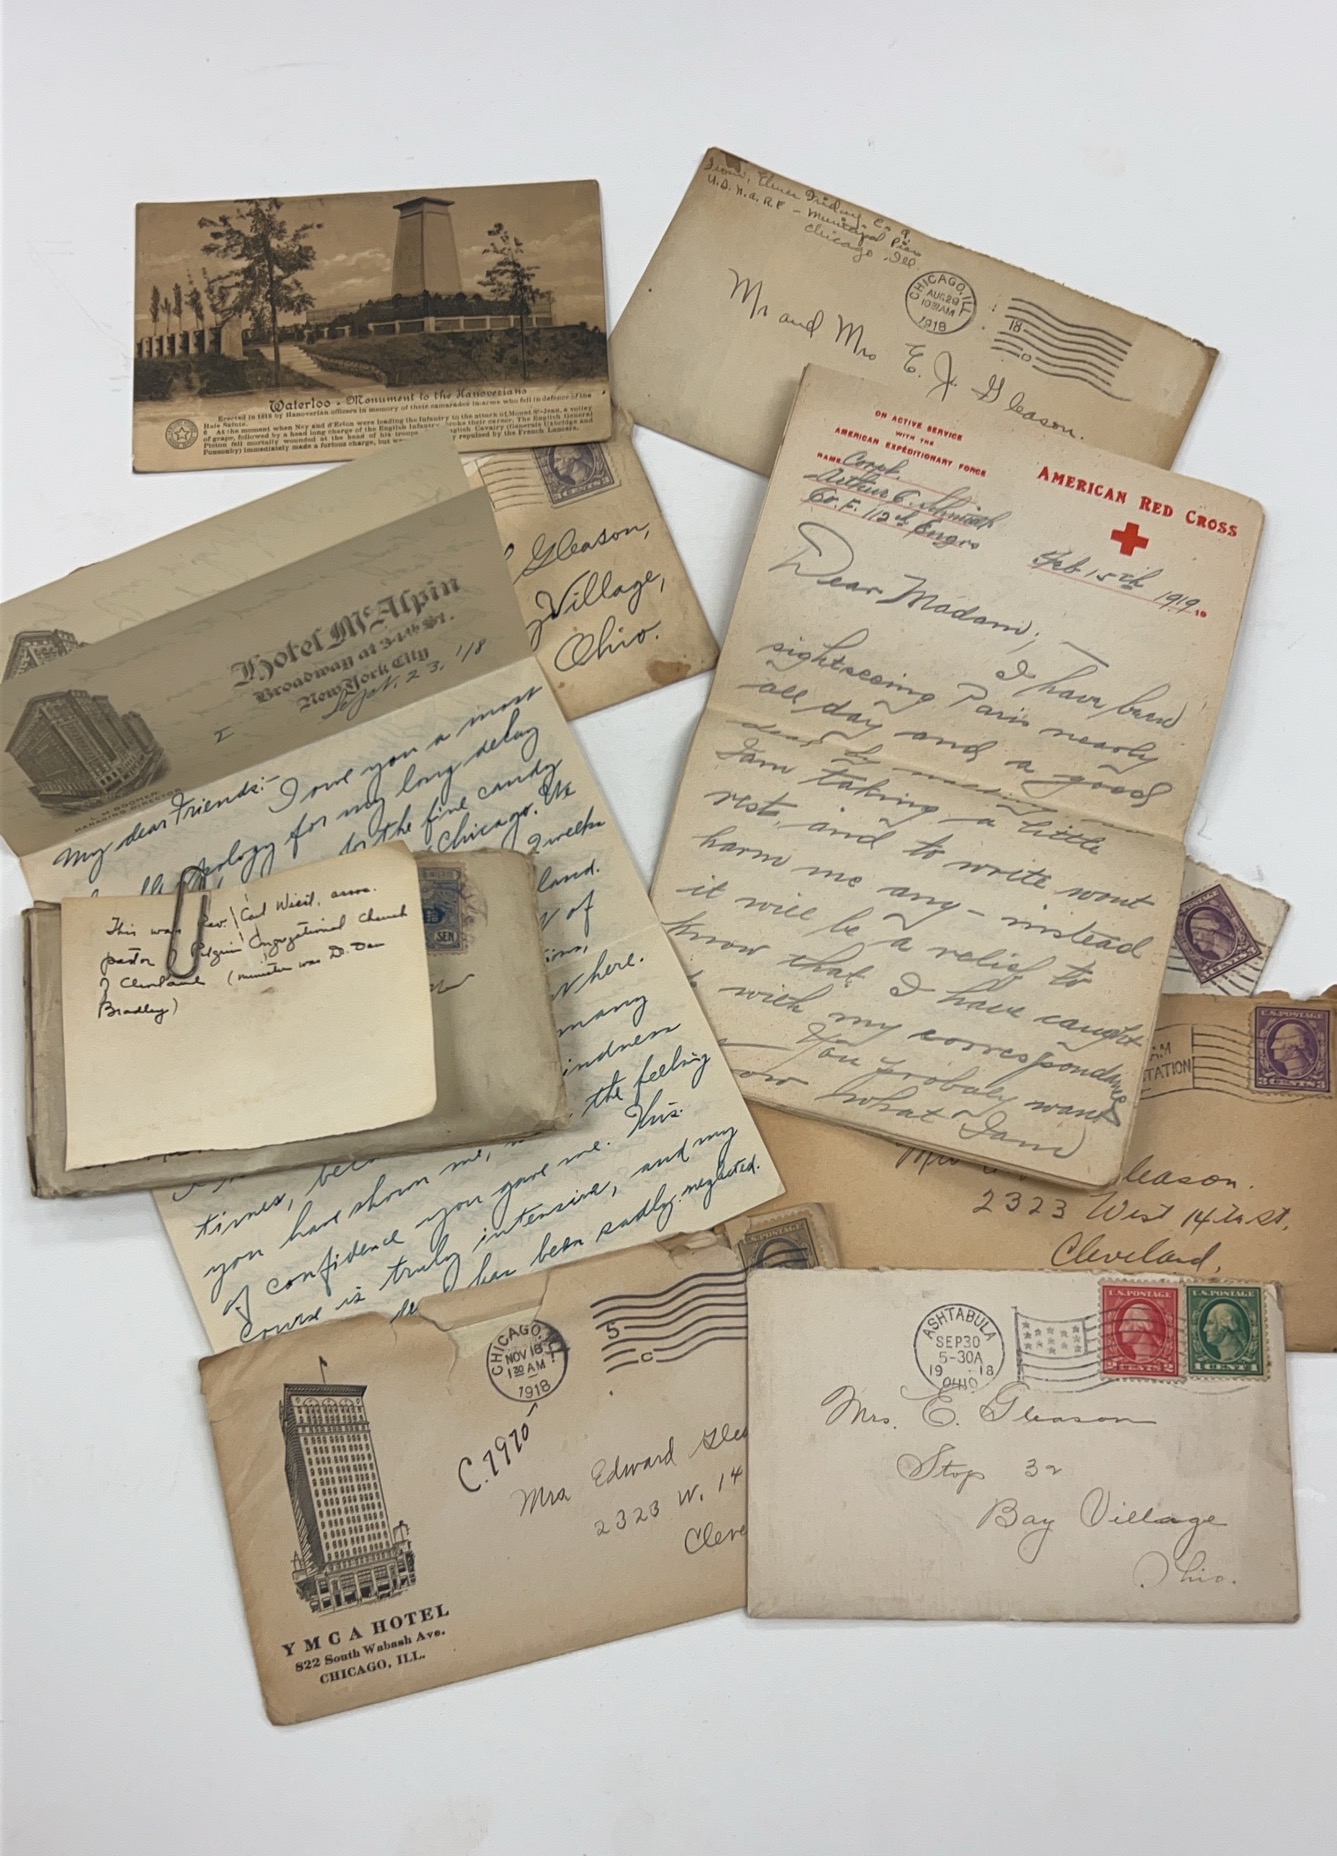 Waterloo - Monument to the Hanoverians
Erected in 1818 by Hanoverian officers in memory of their camarades in arms who fell in defence of the
Haie Sainte.
At the moment when Ney and d'Erlon were leading the Infantry to the attack of Mount St-Jean, a volley
of grape, followed by a head long charge of the English Infantry, broke their career. The English General
Picton fell mortally wounded at the head of his troops English Cavalry (Generals Uxbridge and
Ponsonby) immediately made a furious charge, but w repulsed by the French Lancers.
From, Elmer Friday, Co. 9.
U.S.N.A.R.F - Municipal Pier
Chicago, Ill.
CHICAGO, ILL.
AUG 29
10 AM
1918
18
Mr and Mrs E. J. Gleason.
Gleason,
Village,
Ohio.
ON ACTIVE SERVICE
WITH THE
AMERICAN EXPEDITIONARY FORCE
NAME Corpl.
Arthur C.
Co. F. 112th Engrs
AMERICAN RED CROSS
Feb 15th 1919 19
Dear Madam; —
I have been
sightseeing Paris nearly
all day and a good
I am taking a little
rest, and to write wont
harm me any - instead
it will be a relief to
know that I have caught
with my correspondence
You probaly want
ow what I am
Hotel McAlpin
Broadway at 34th St.
New York City
Sept. 23, '18
I
L. M. BOOMER
MANAGING DIRECTOR
My dear Friends:-
I owe you a most
apology for my long delay
for the fine candy
Chicago. We
2 weeks
land.
of
ions,
where.
many
indness
the feeling
times,
you have shown me,
of confidence you gave me. This
course is truly intensive, and my
has been sadly neglected.
This was Rev. Carl
pastor of Pilgrim Congregational Church
of Cleveland (minister was Dr. Dan
Bradley)
SEN
U.S. POSTAGE
3 CENTS 3
Gleason.
2323 West 14th St,
Cleveland,
CHICAGO, ILL
NOV 18
1 30 AM
1918
5
C
C.7970
Mrs Edward Glea
2323 W. 14
Cleve
YMCA HOTEL
822 South Wabash Ave.
CHICAGO, ILL.
ASHTABULA
SEP 30
5-30A
19 18
OHIO
U.S. POSTAGE
2 CENTS 2
U.S. POSTAGE
1 CENT 1
Mrs. E. Gleason
Stop 32
Bay Village
Ohio.